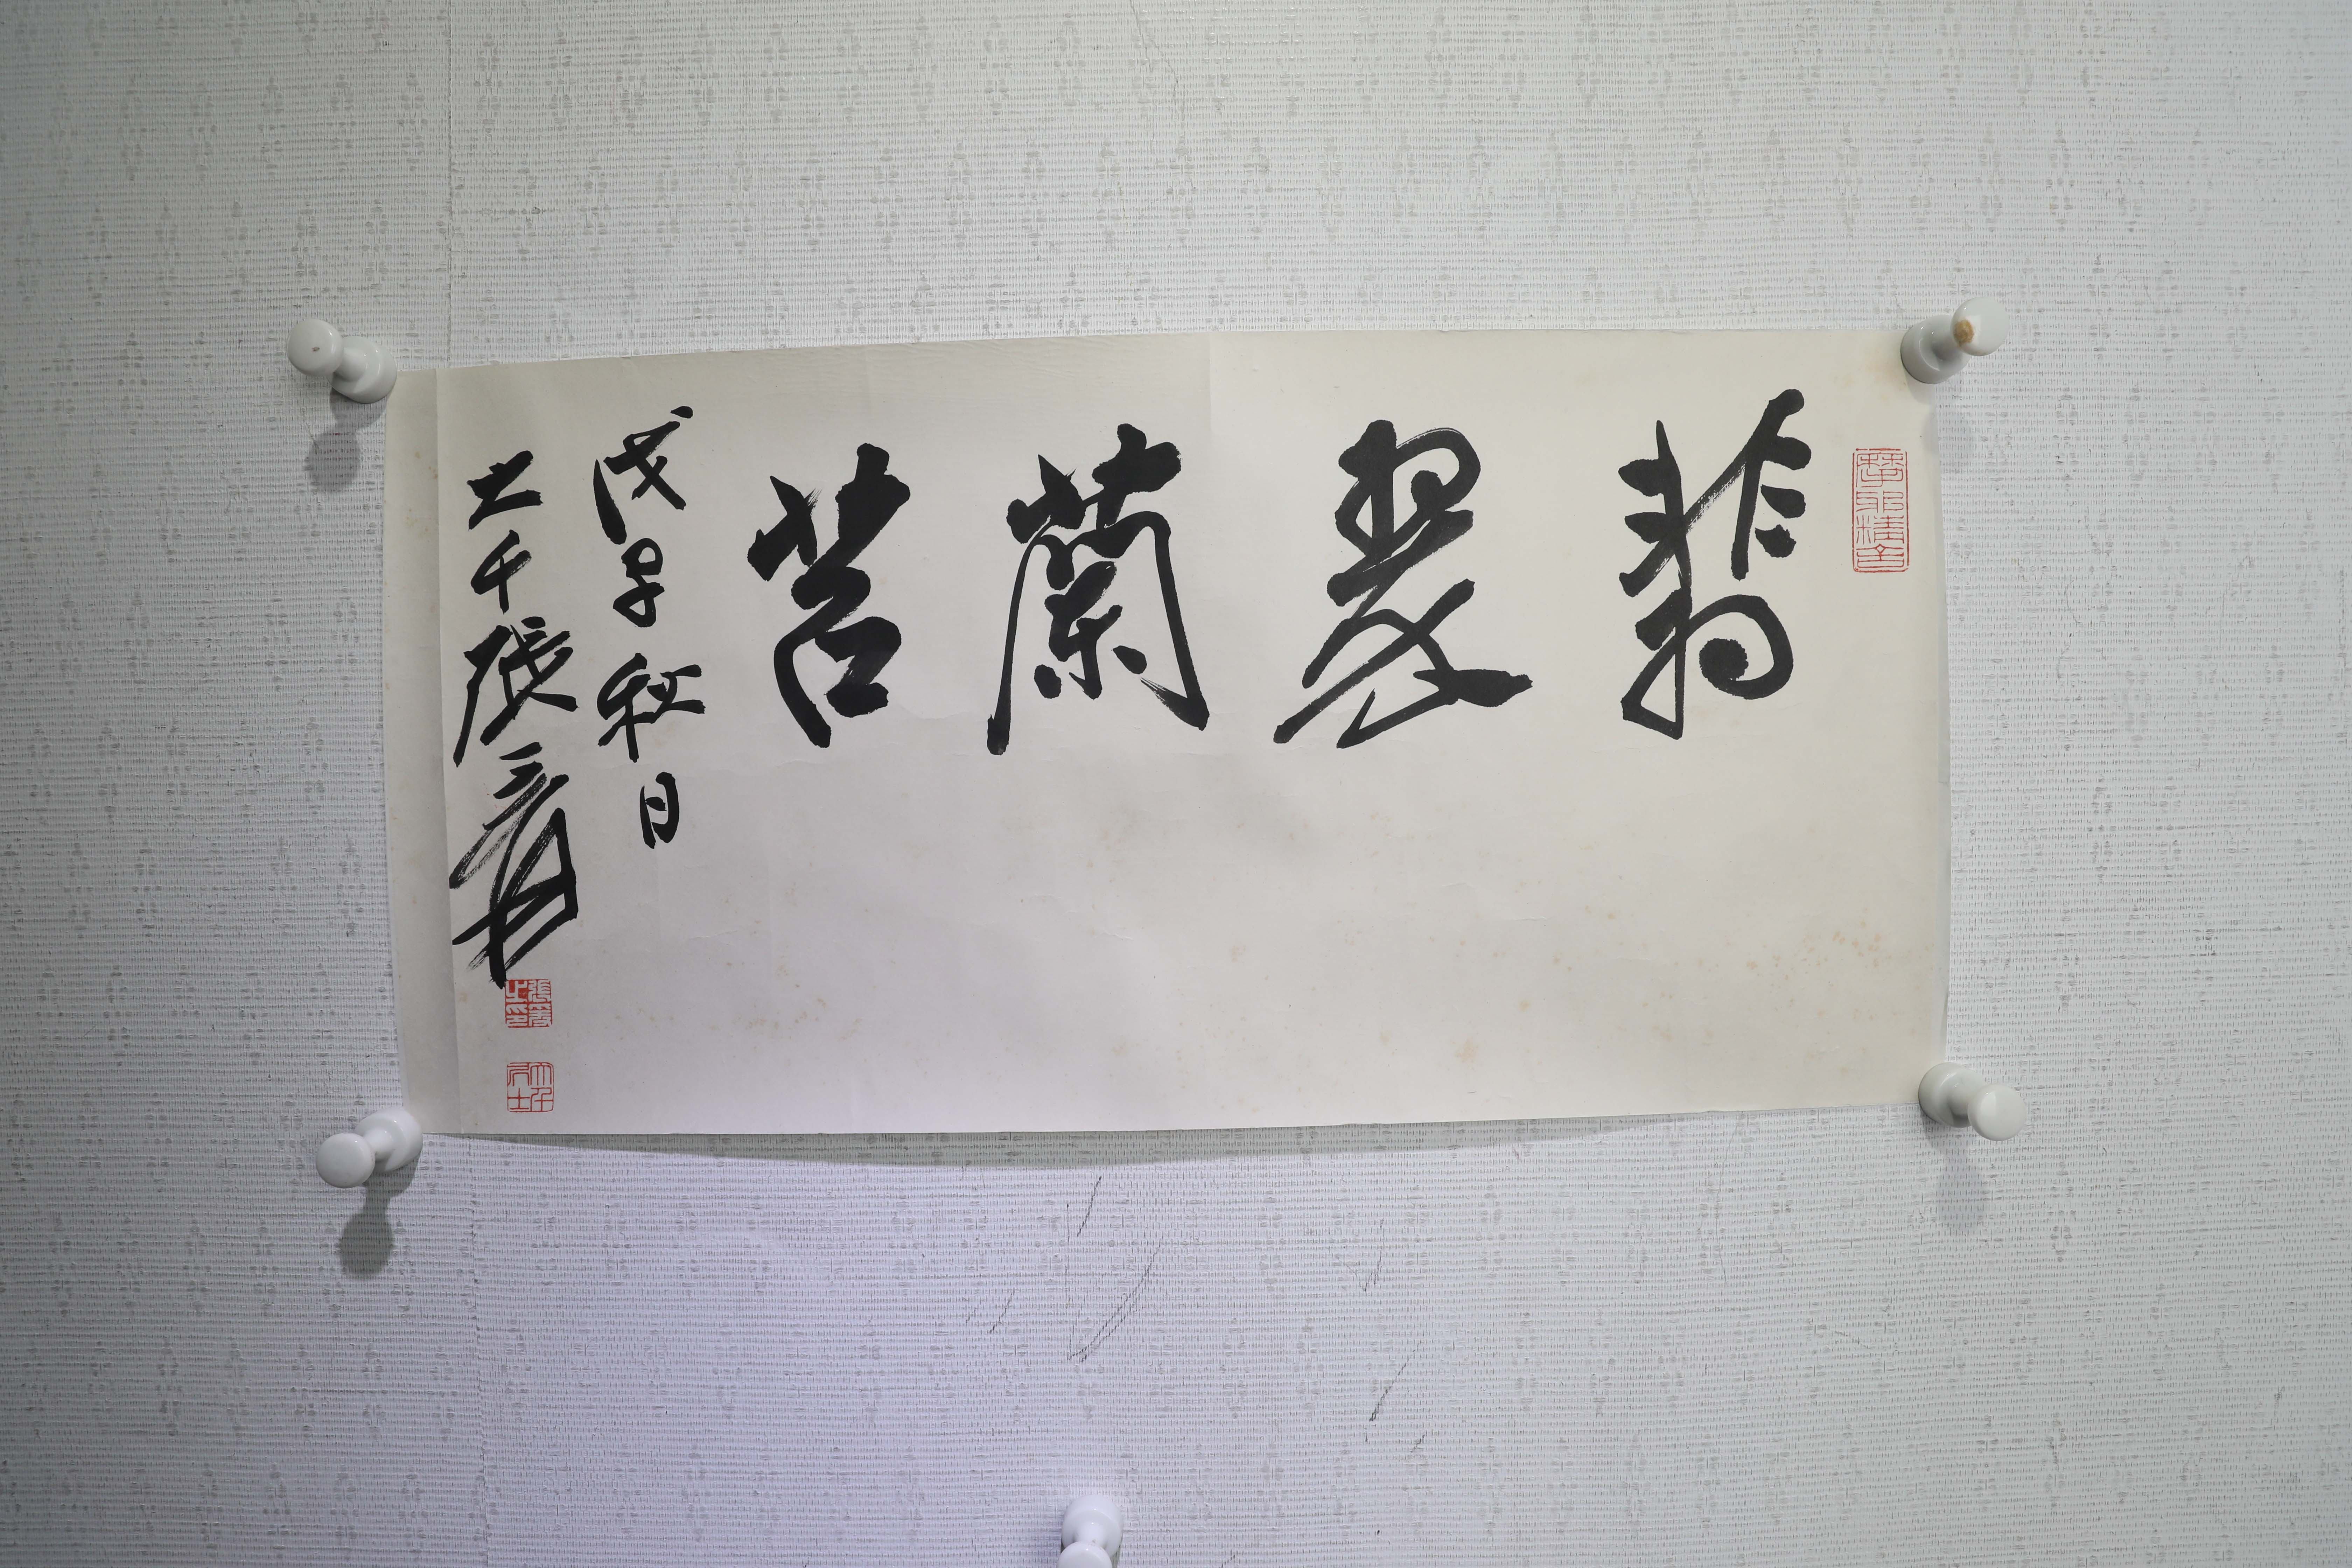 翡翠蘭苕
戊子秋日
大千張爰
張爰之印
大千居士